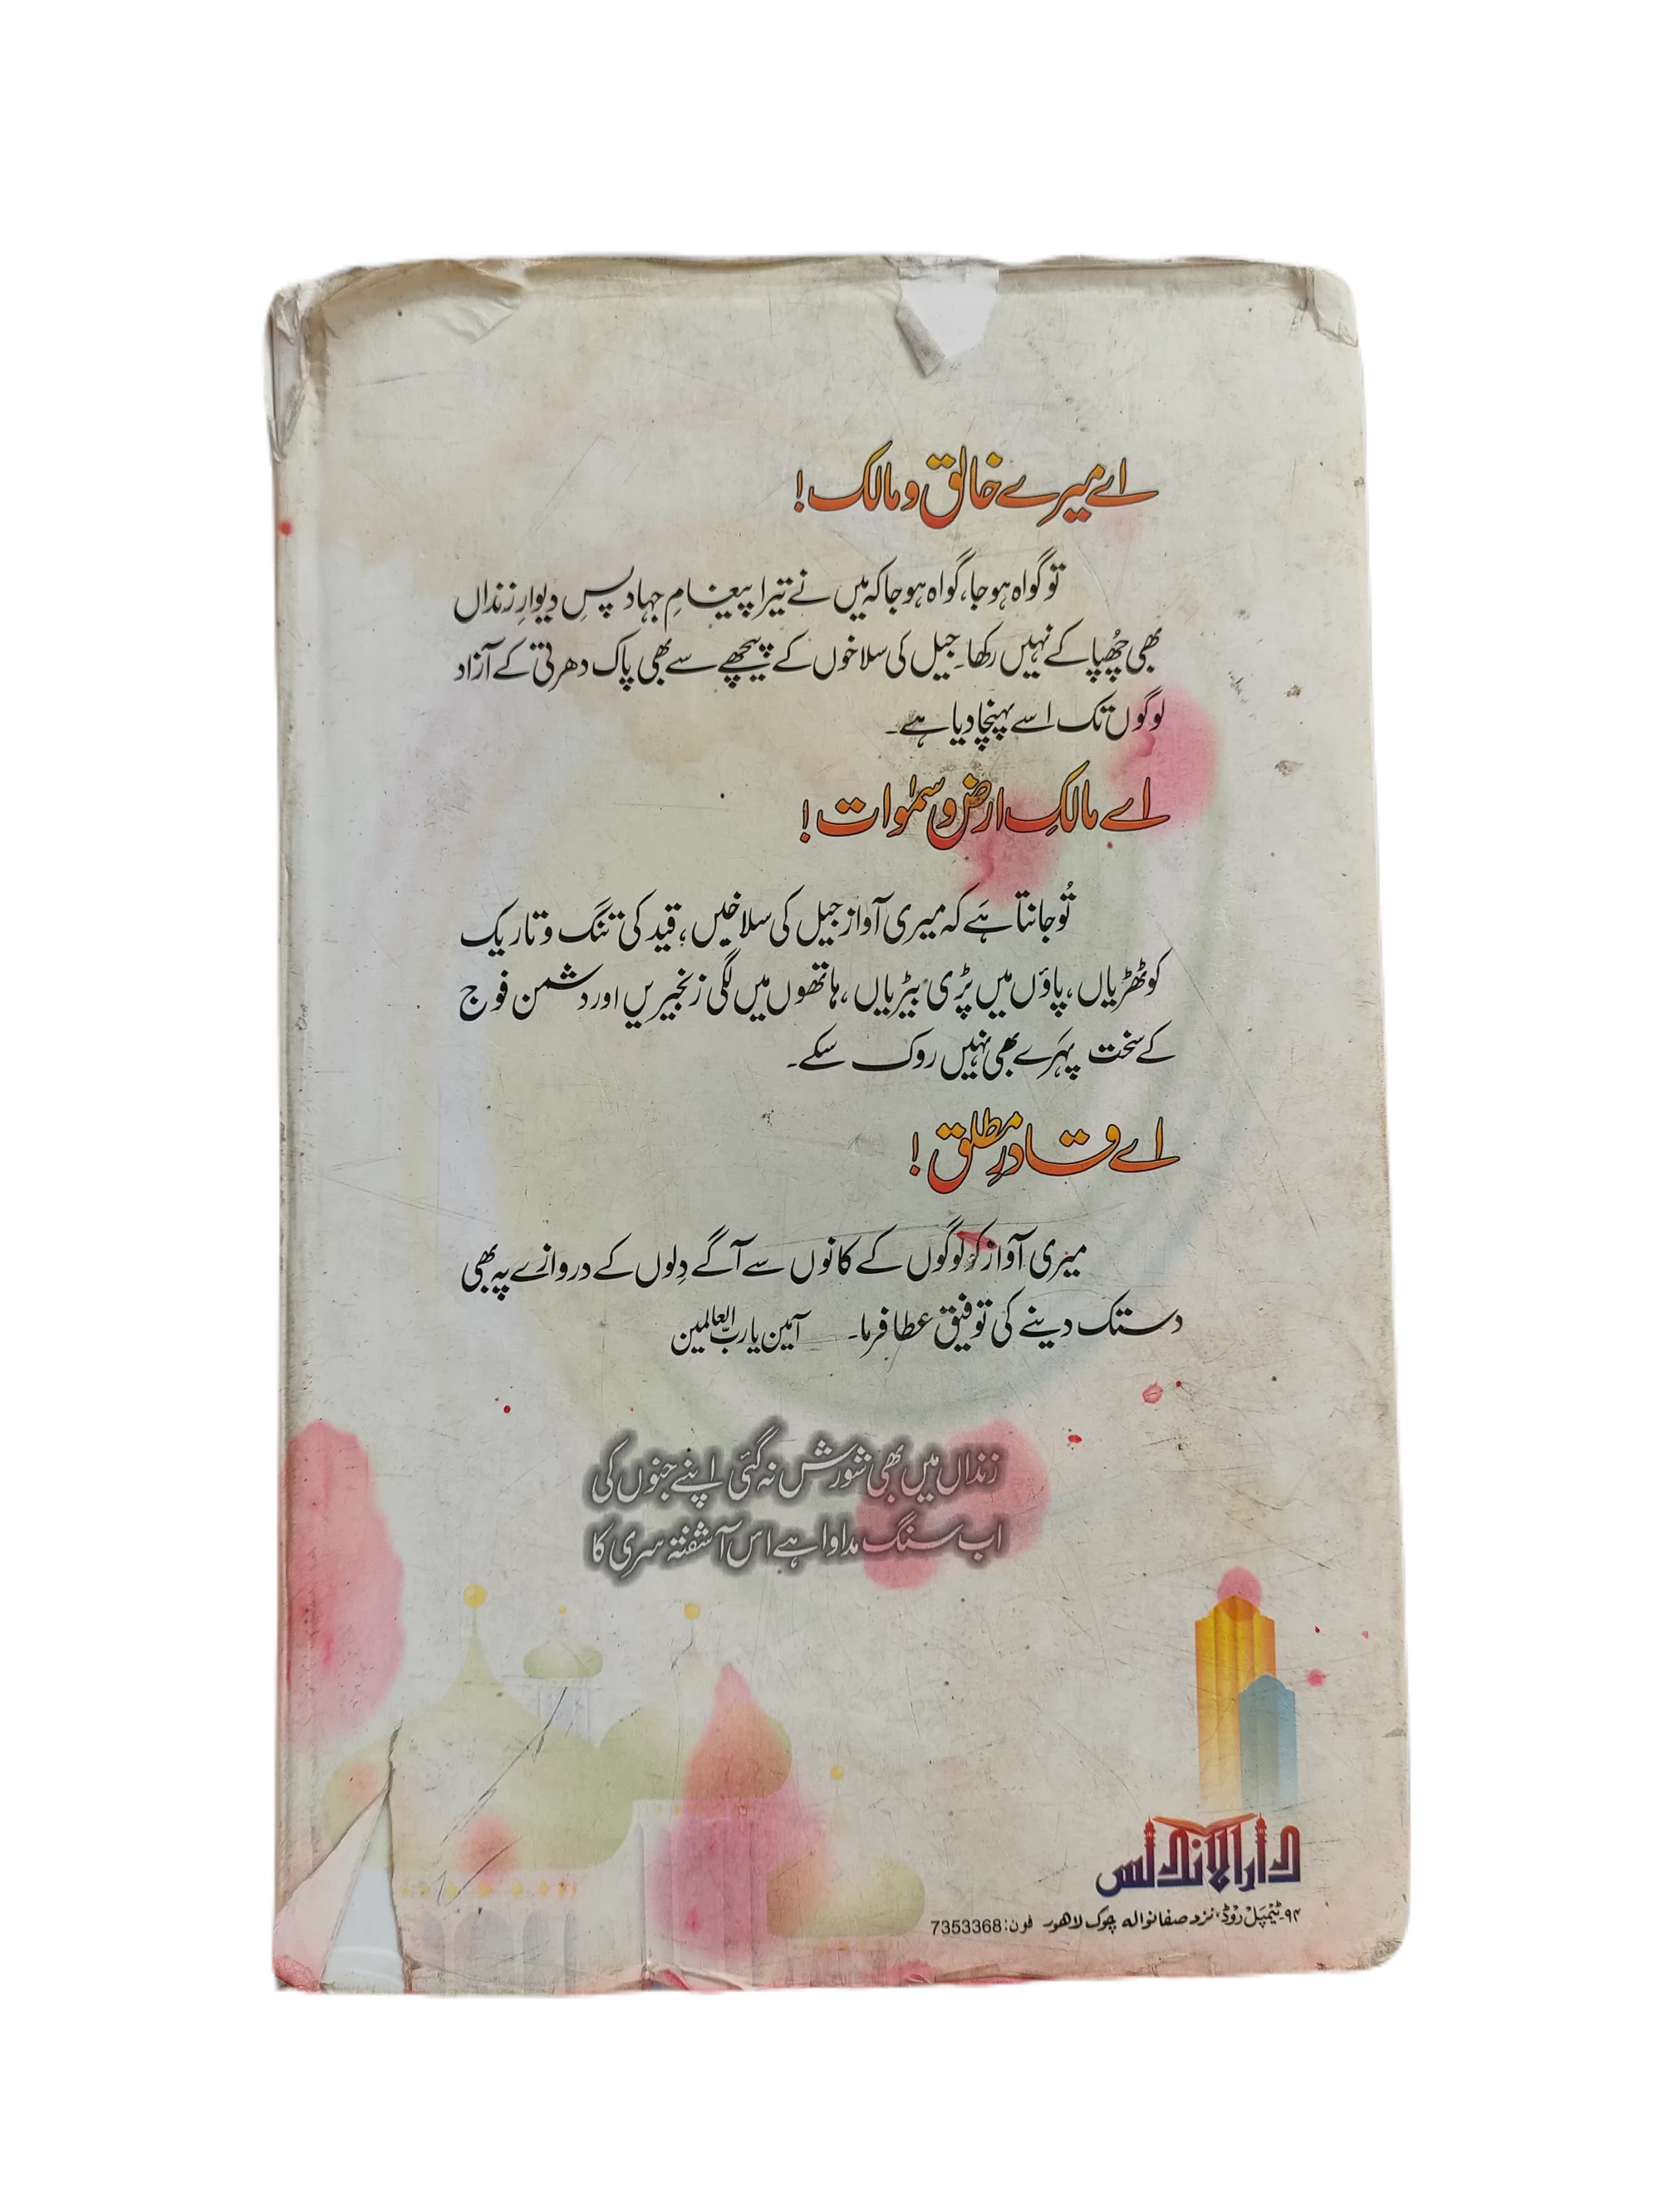 اے میرے خالق و مالک!
تو گواہ ہو جا، گواہ ہو جا کہ میں نے تیرا پیغامِ جہاد پسِ دیوارِ زنداں
بھی چُھپا کے نہیں رکھا۔ جیل کی سلاخوں کے پیچھے سے بھی پاک دھرتی کے آزاد
لوگوں تک اسے پہنچا دیا ہے۔
اے مالکِ ارض و سمٰوات!
تُو جانتا ہے کہ میری آواز جیل کی سلاخیں، قید کی تنگ و تاریک
کوٹھڑیاں، پاؤں میں پڑی بیڑیاں، ہاتھوں میں لگی زنجیریں اور دشمن فوج
کے سخت پہرے بھی نہیں روک سکے۔
اے قادرِ مطلق!
میری آواز کو لوگوں کے کانوں سے آگے دِلوں کے دروازے پہ بھی
دستک دینے کی توفیق عطا فرما۔ آمین یا ربّ العالمین
زنداں میں بھی شورش نہ گئی اپنے جنوں کی
اب سنگ مداوا ہے اس آشفتہ سری کا
دارالاندلس
۹۴-ٹیمپل روڈ، نزد صفانوالہ چوک لاہور فون: 7353368